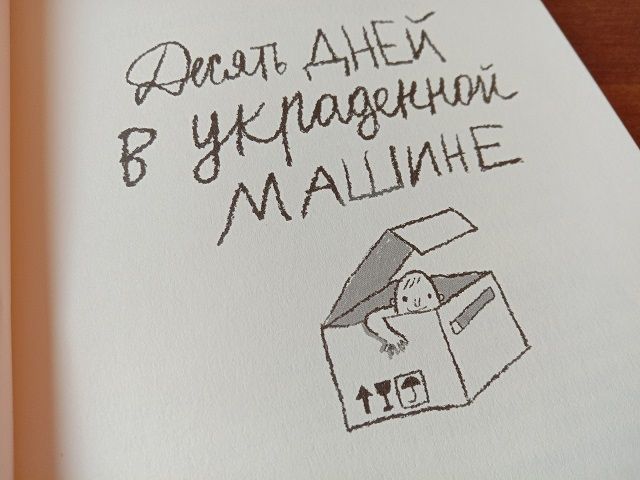 Десять ДНЕЙ
в украденной
МАШИНЕ